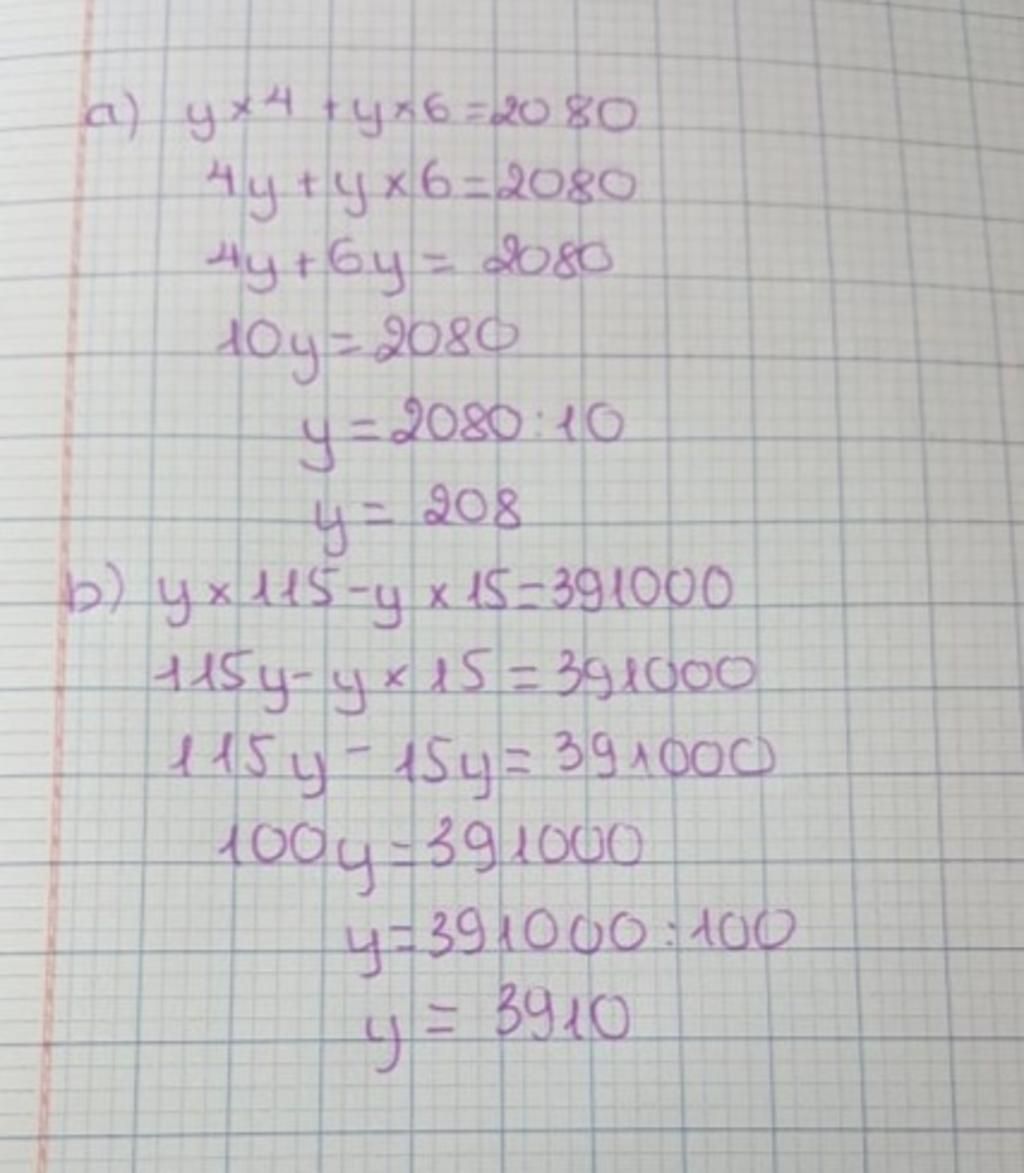 a) y × 4 + y × 6 = 2080
4y + y × 6 = 2080
4y + 6y = 2080
10y = 2080
y = 2080 : 10
y = 208
b) y × 115 - y × 15 = 391000
115y - y × 15 = 391000
115y - 15y = 391000
100y = 391000
y = 391000 : 100
y = 3910